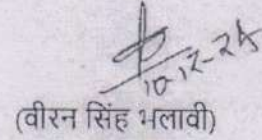 10-12-24
(वीरन सिंह भलावी)